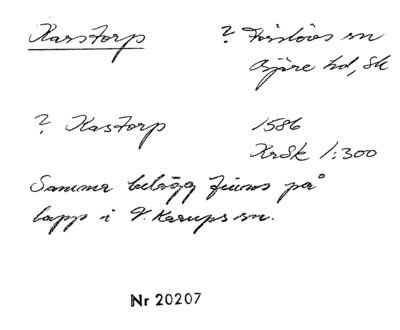 Karstorp ? Förslövs sn
Bjäre hd, Sk
? Kastorp 1586
KrSk 1:300
Samma belägg finns på
lapp i V. Karups sn.
Nr 20207